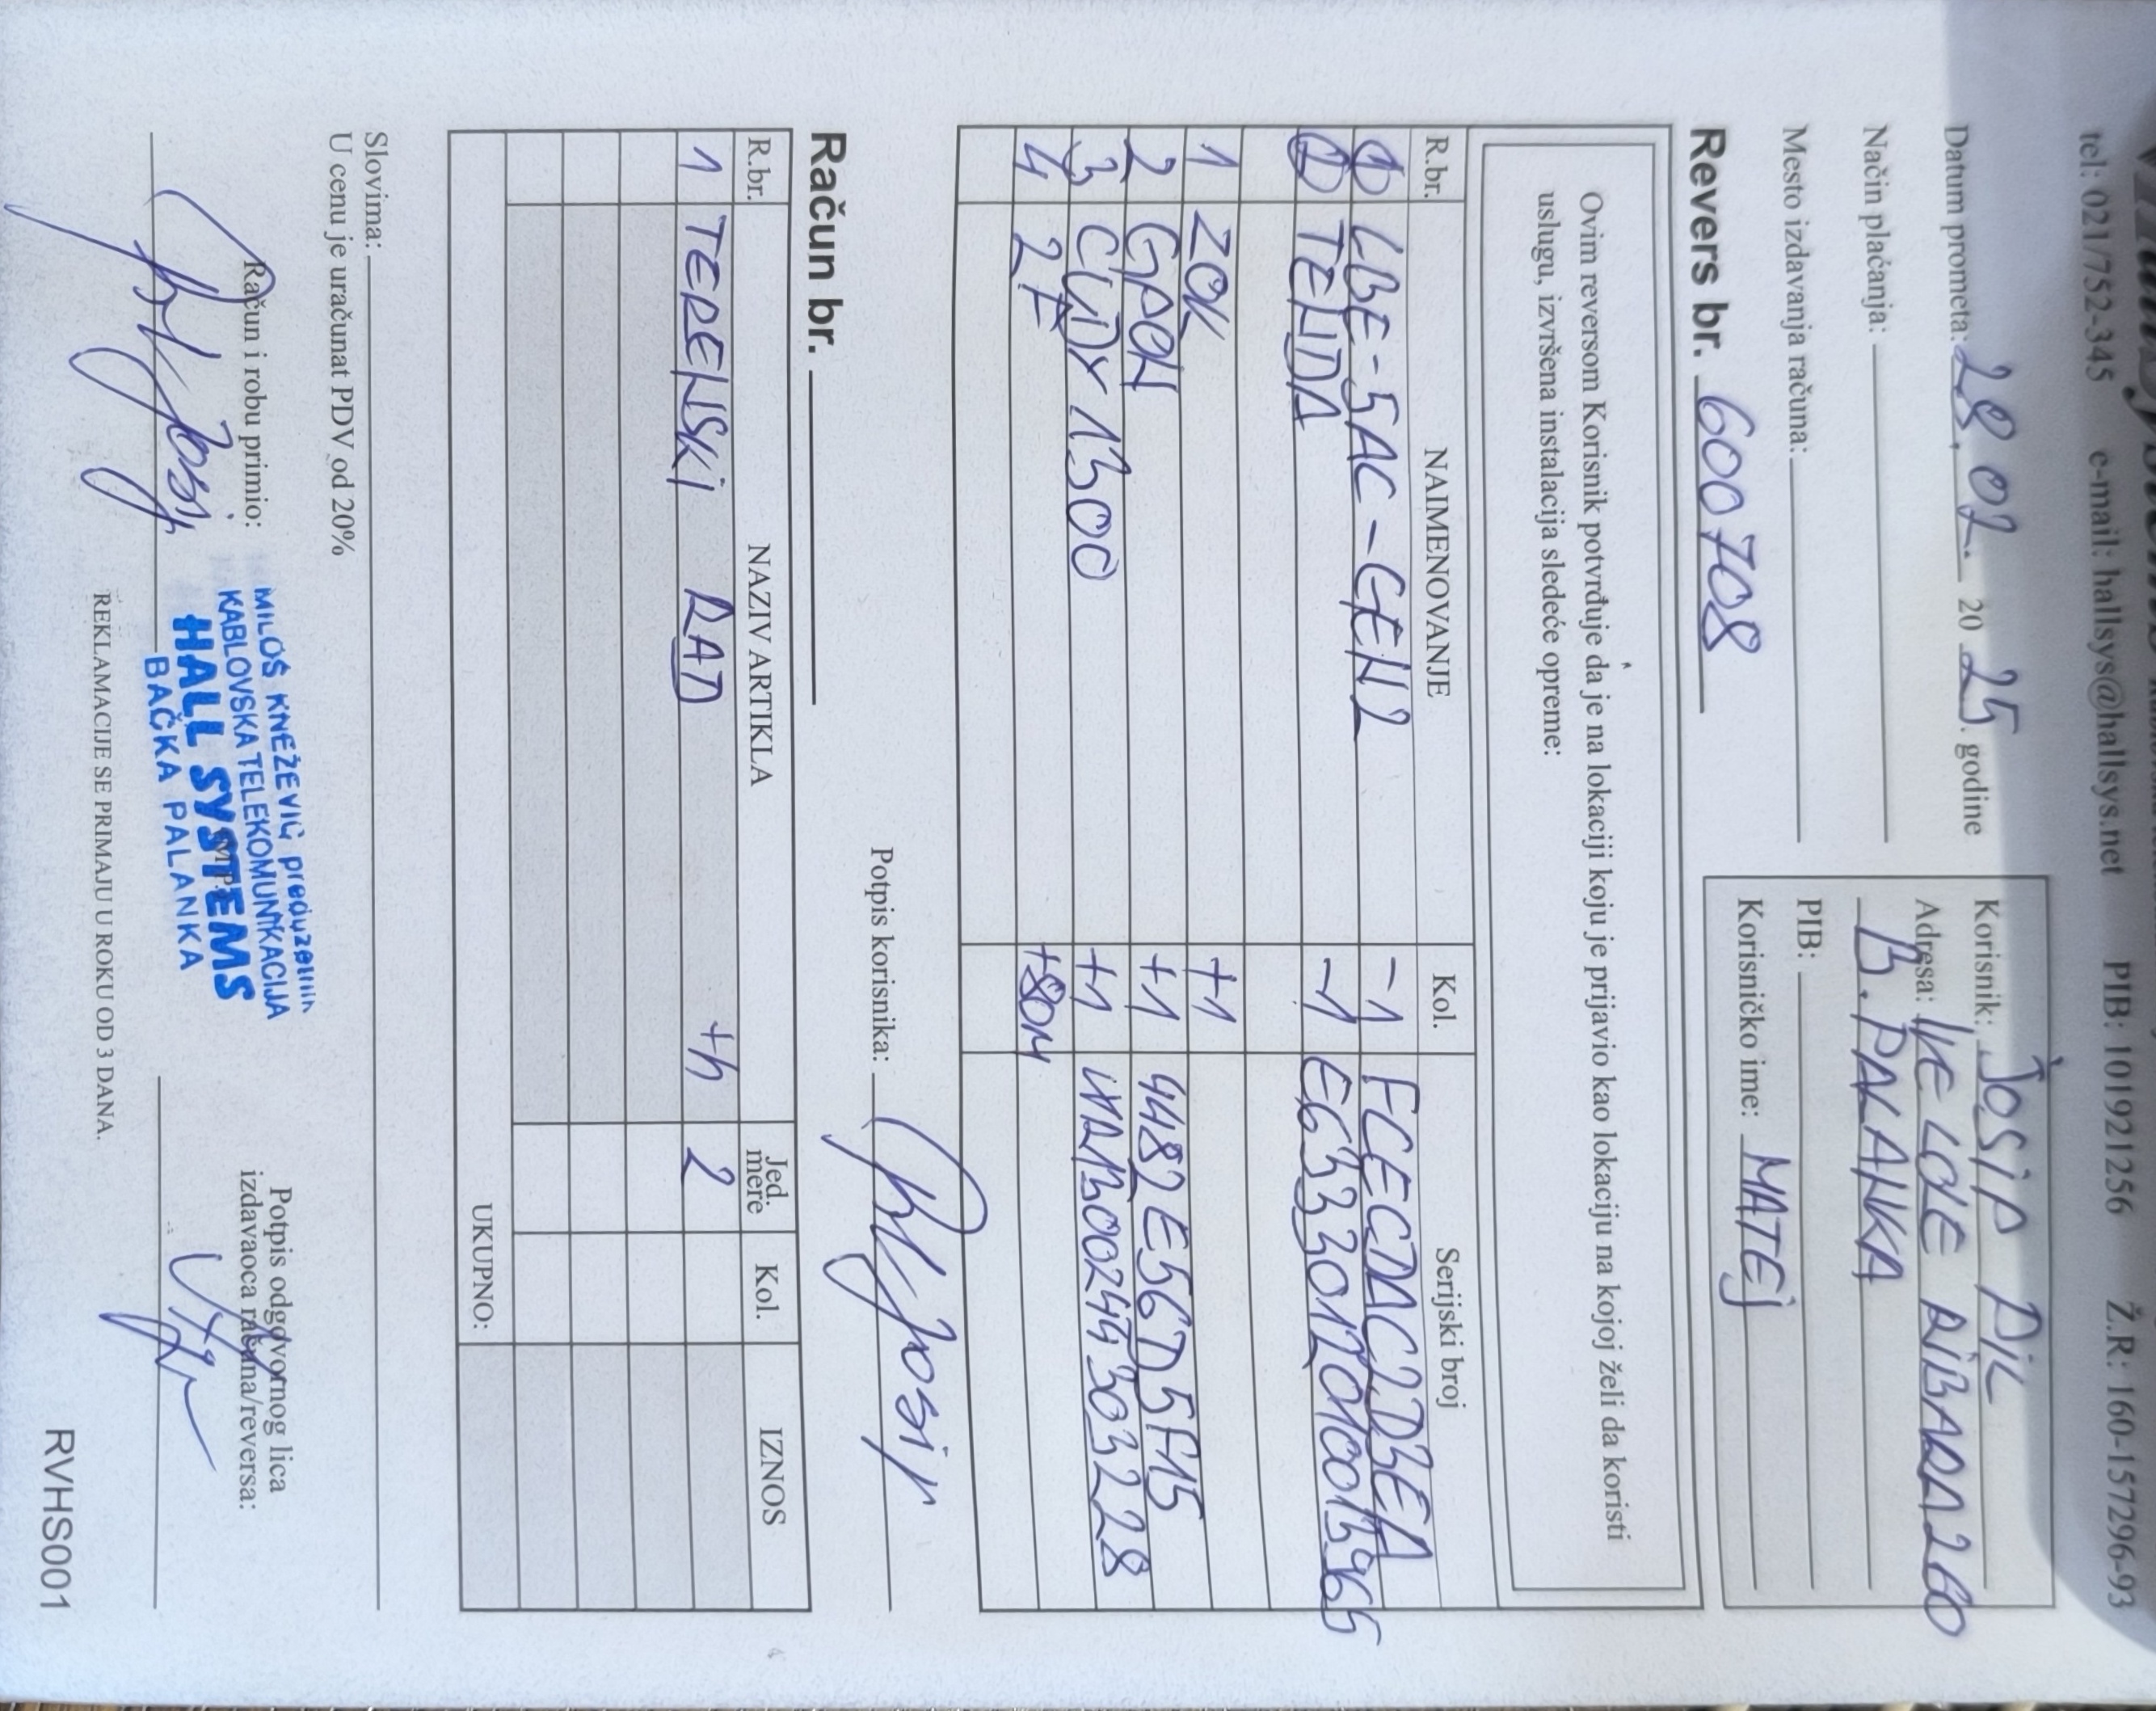 tel: 021/752-345 e-mail: hallsys@hallsys.net PIB: 101921256 Ž.R: 160-157296-93
Datum prometa: 28. 02. 20 25. godine
Način plaćanja:
Mesto izdavanja računa:
Korisnik: JOSIP PIL
Adresa: IVE LOLE RIBARA 260
B. PALANKA
PIB:
Korisničko ime: MATEJ
Revers br. 600708
Ovim reversom Korisnik potvrđuje da je na lokaciji koju je prijavio kao lokaciju na kojoj želi da koristi
uslugu, izvršena instalacija sledeće opreme:
R.br. NAIMENOVANJE Kol. Serijski broj
1 LBE-5AC-GEN2 -1 FCECDAC2DBEA
2 TENDA -1 E6332012010013965
1 ZOK +1
2 GPON +1 4482E56D5F15
3 CUDY 1300 +1 WR1300244303228
4 2F +80M
Potpis korisnika: Josip
Račun br.
R.br. NAZIV ARTIKLA Jed. mere Kol. IZNOS
1 TERENSKI RAD +h 2
UKUPNO:
Slovima:
U cenu je uračunat PDV od 20%
Račun i robu primio:
Josip
MILOŠ KNEŽEVIĆ preduzetnik
KABLOVSKA TELEKOMUNIKACIJA
HALL SYSTEMS
BAČKA PALANKA
M.P.
Potpis odgovornog lica
izdavaoca računa/reversa:
REKLAMACIJE SE PRIMAJU U ROKU OD 3 DANA.
RVHS001